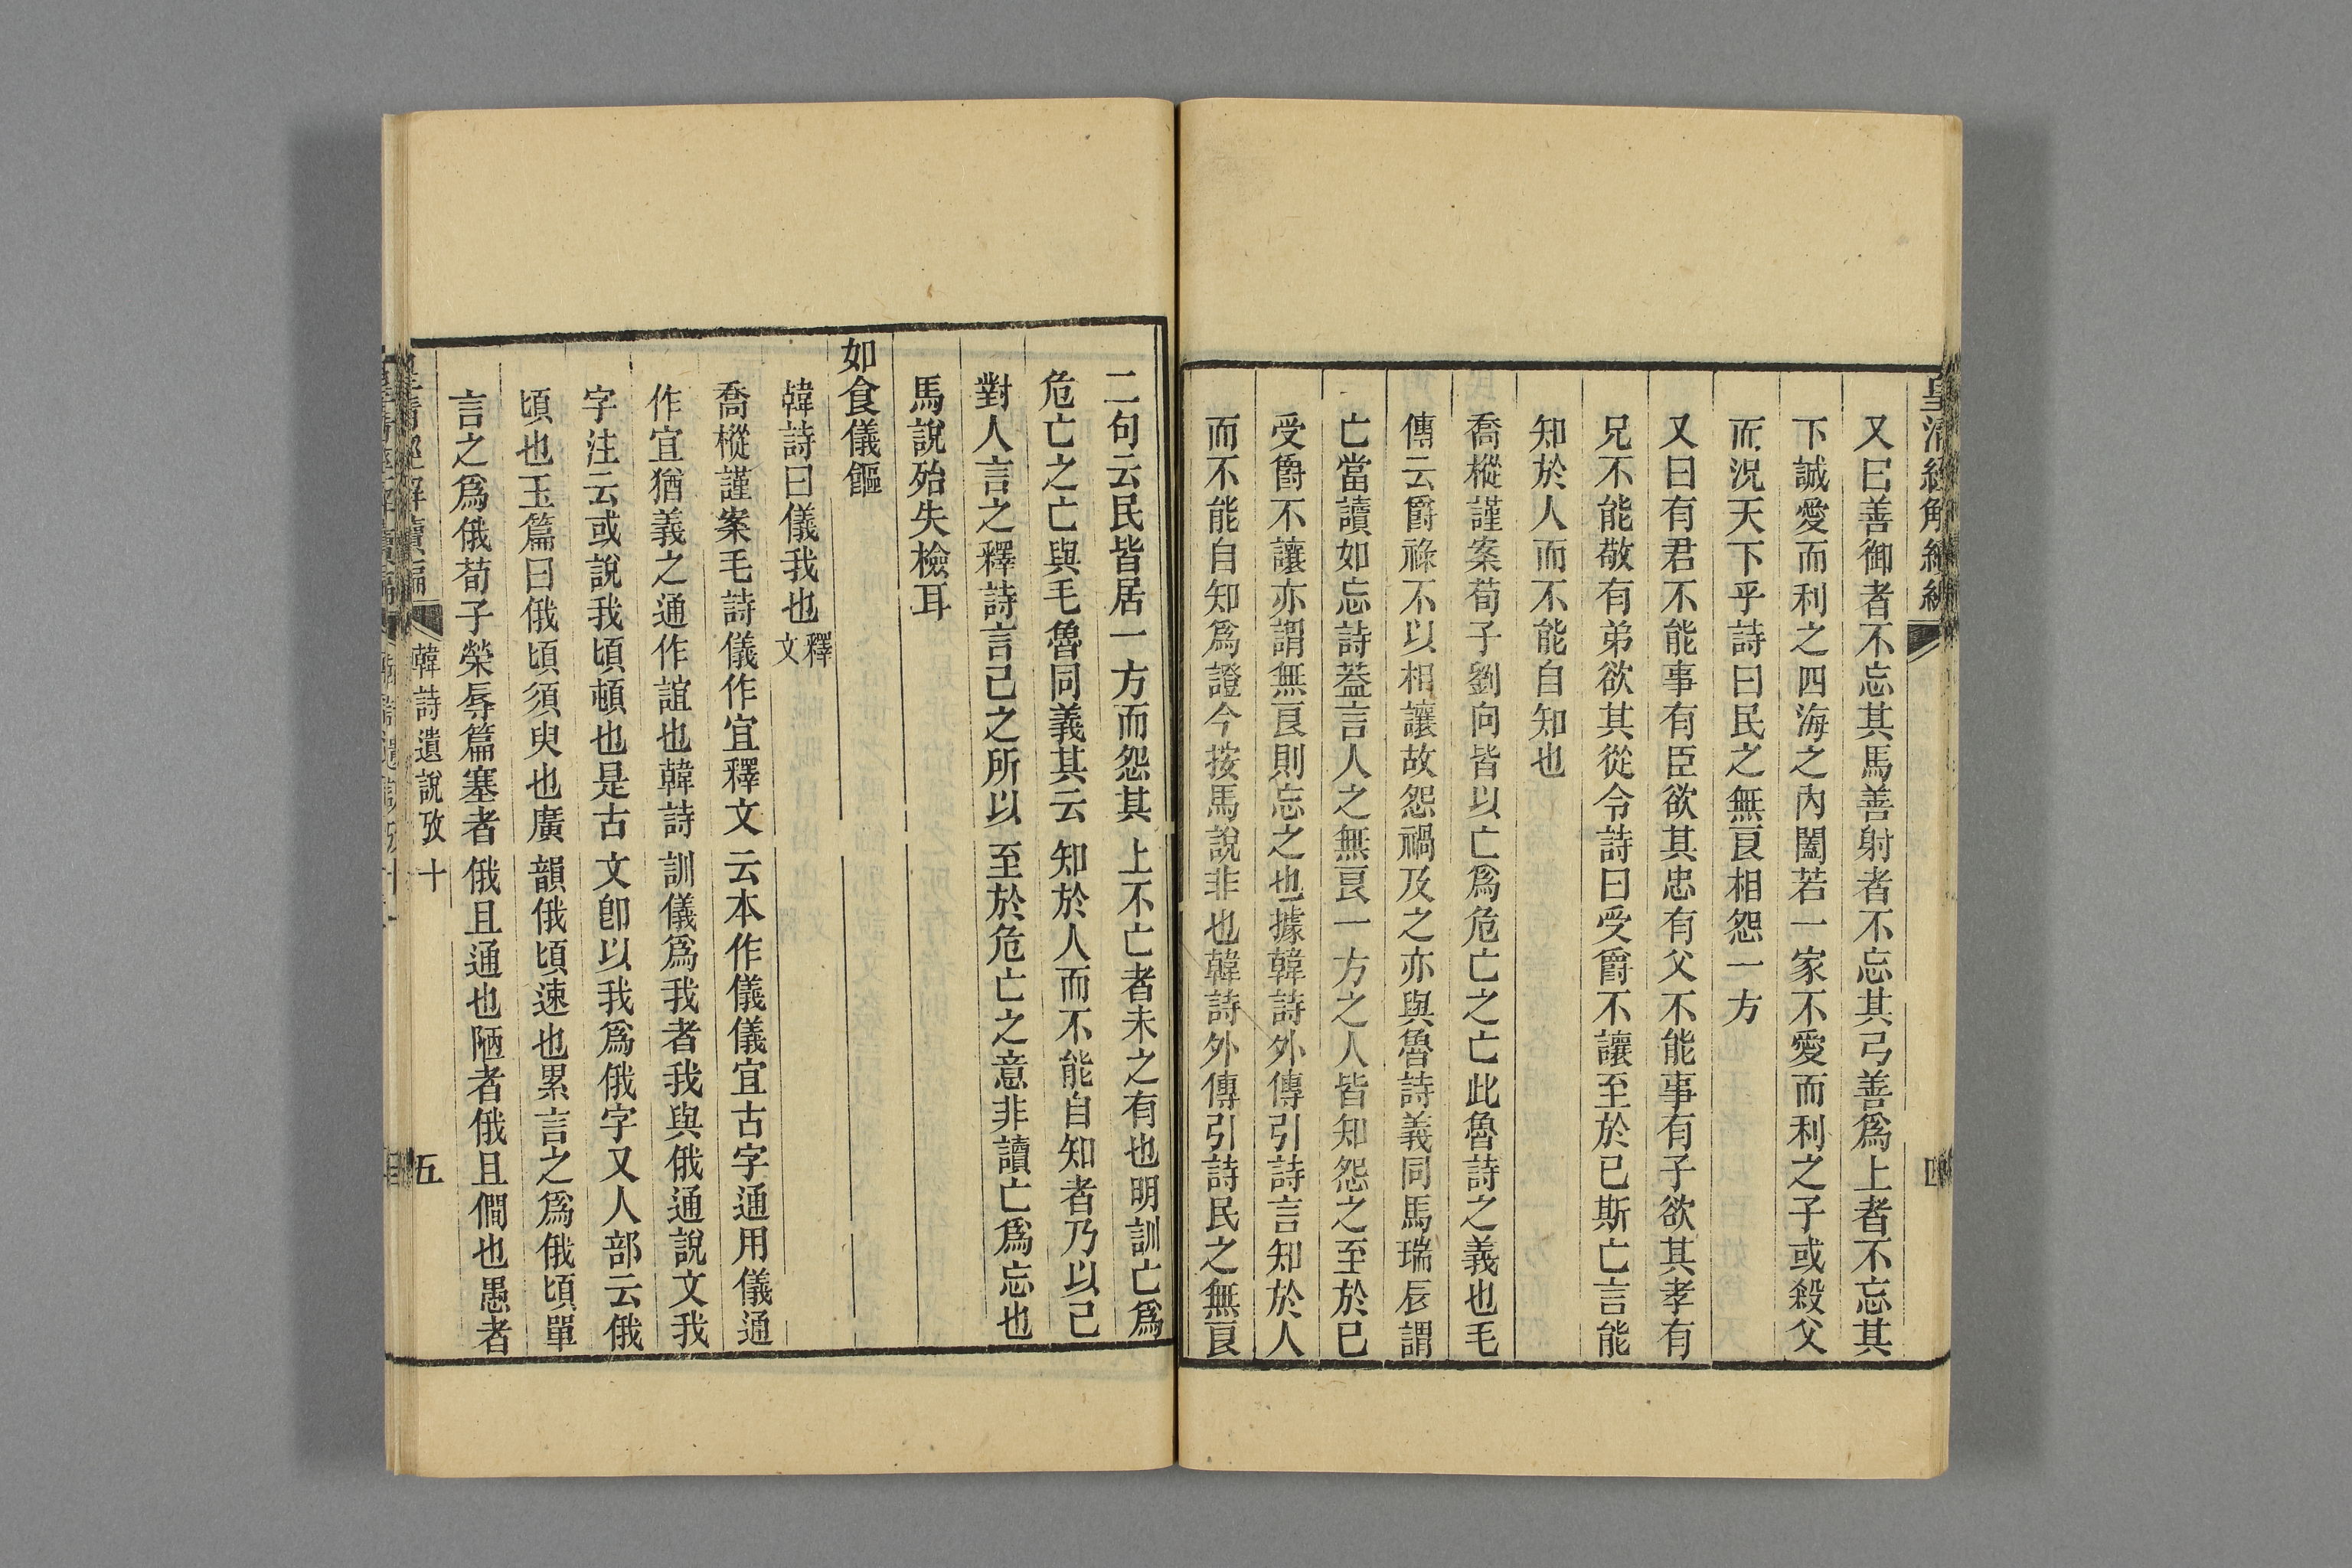 皇清經解續編
四
又曰善御者不忘其馬善射者不忘其弓善爲上者不忘其
下誠愛而利之四海之內闔若一家不愛而利之子或殺父
而況天下乎詩曰民之無良相怨一方
又曰有君不能事有臣欲其忠有父不能事有子欲其孝有
兄不能敬有弟欲其從令詩曰受爵不讓至於已斯亡言能
知於人而不能自知也
喬樅謹案荀子劉向皆以亡爲危亡之亡此魯詩之義也毛
傳云爵祿不以相讓故怨禍及之亦與魯詩義同馬瑞辰謂
亡當讀如忘詩葢言人之無良一方之人皆知怨之至於已
受爵不讓亦謂無良則忘之也據韓詩外傳引詩言知於人
而不能自知爲證今按馬說非也韓詩外傳引詩民之無良
二句云民皆居一方而怨其上不亡者未之有也明訓亡爲
危亡之亡與毛魯同義其云知於人而不能自知者乃以己
對人言之釋詩言己之所以至於危亡之意非讀亡爲忘也
馬說殆失檢耳
如食儀饇
韓詩曰儀我也釋文
喬樅謹案毛詩儀作宜釋文云本作儀儀宜古字通用儀通
作宜猶義之通作誼也韓詩訓儀爲我者我與俄通說文我
字注云或說我頃頓也是古文卽以我爲俄字又人部云俄
頃也玉篇曰俄頃須臾也廣韻俄頃速也累言之爲俄頃單
言之爲俄荀子榮辱篇塞者俄且通也陋者俄且僩也愚者
皇清經解續編
韓詩遺說攷十
五